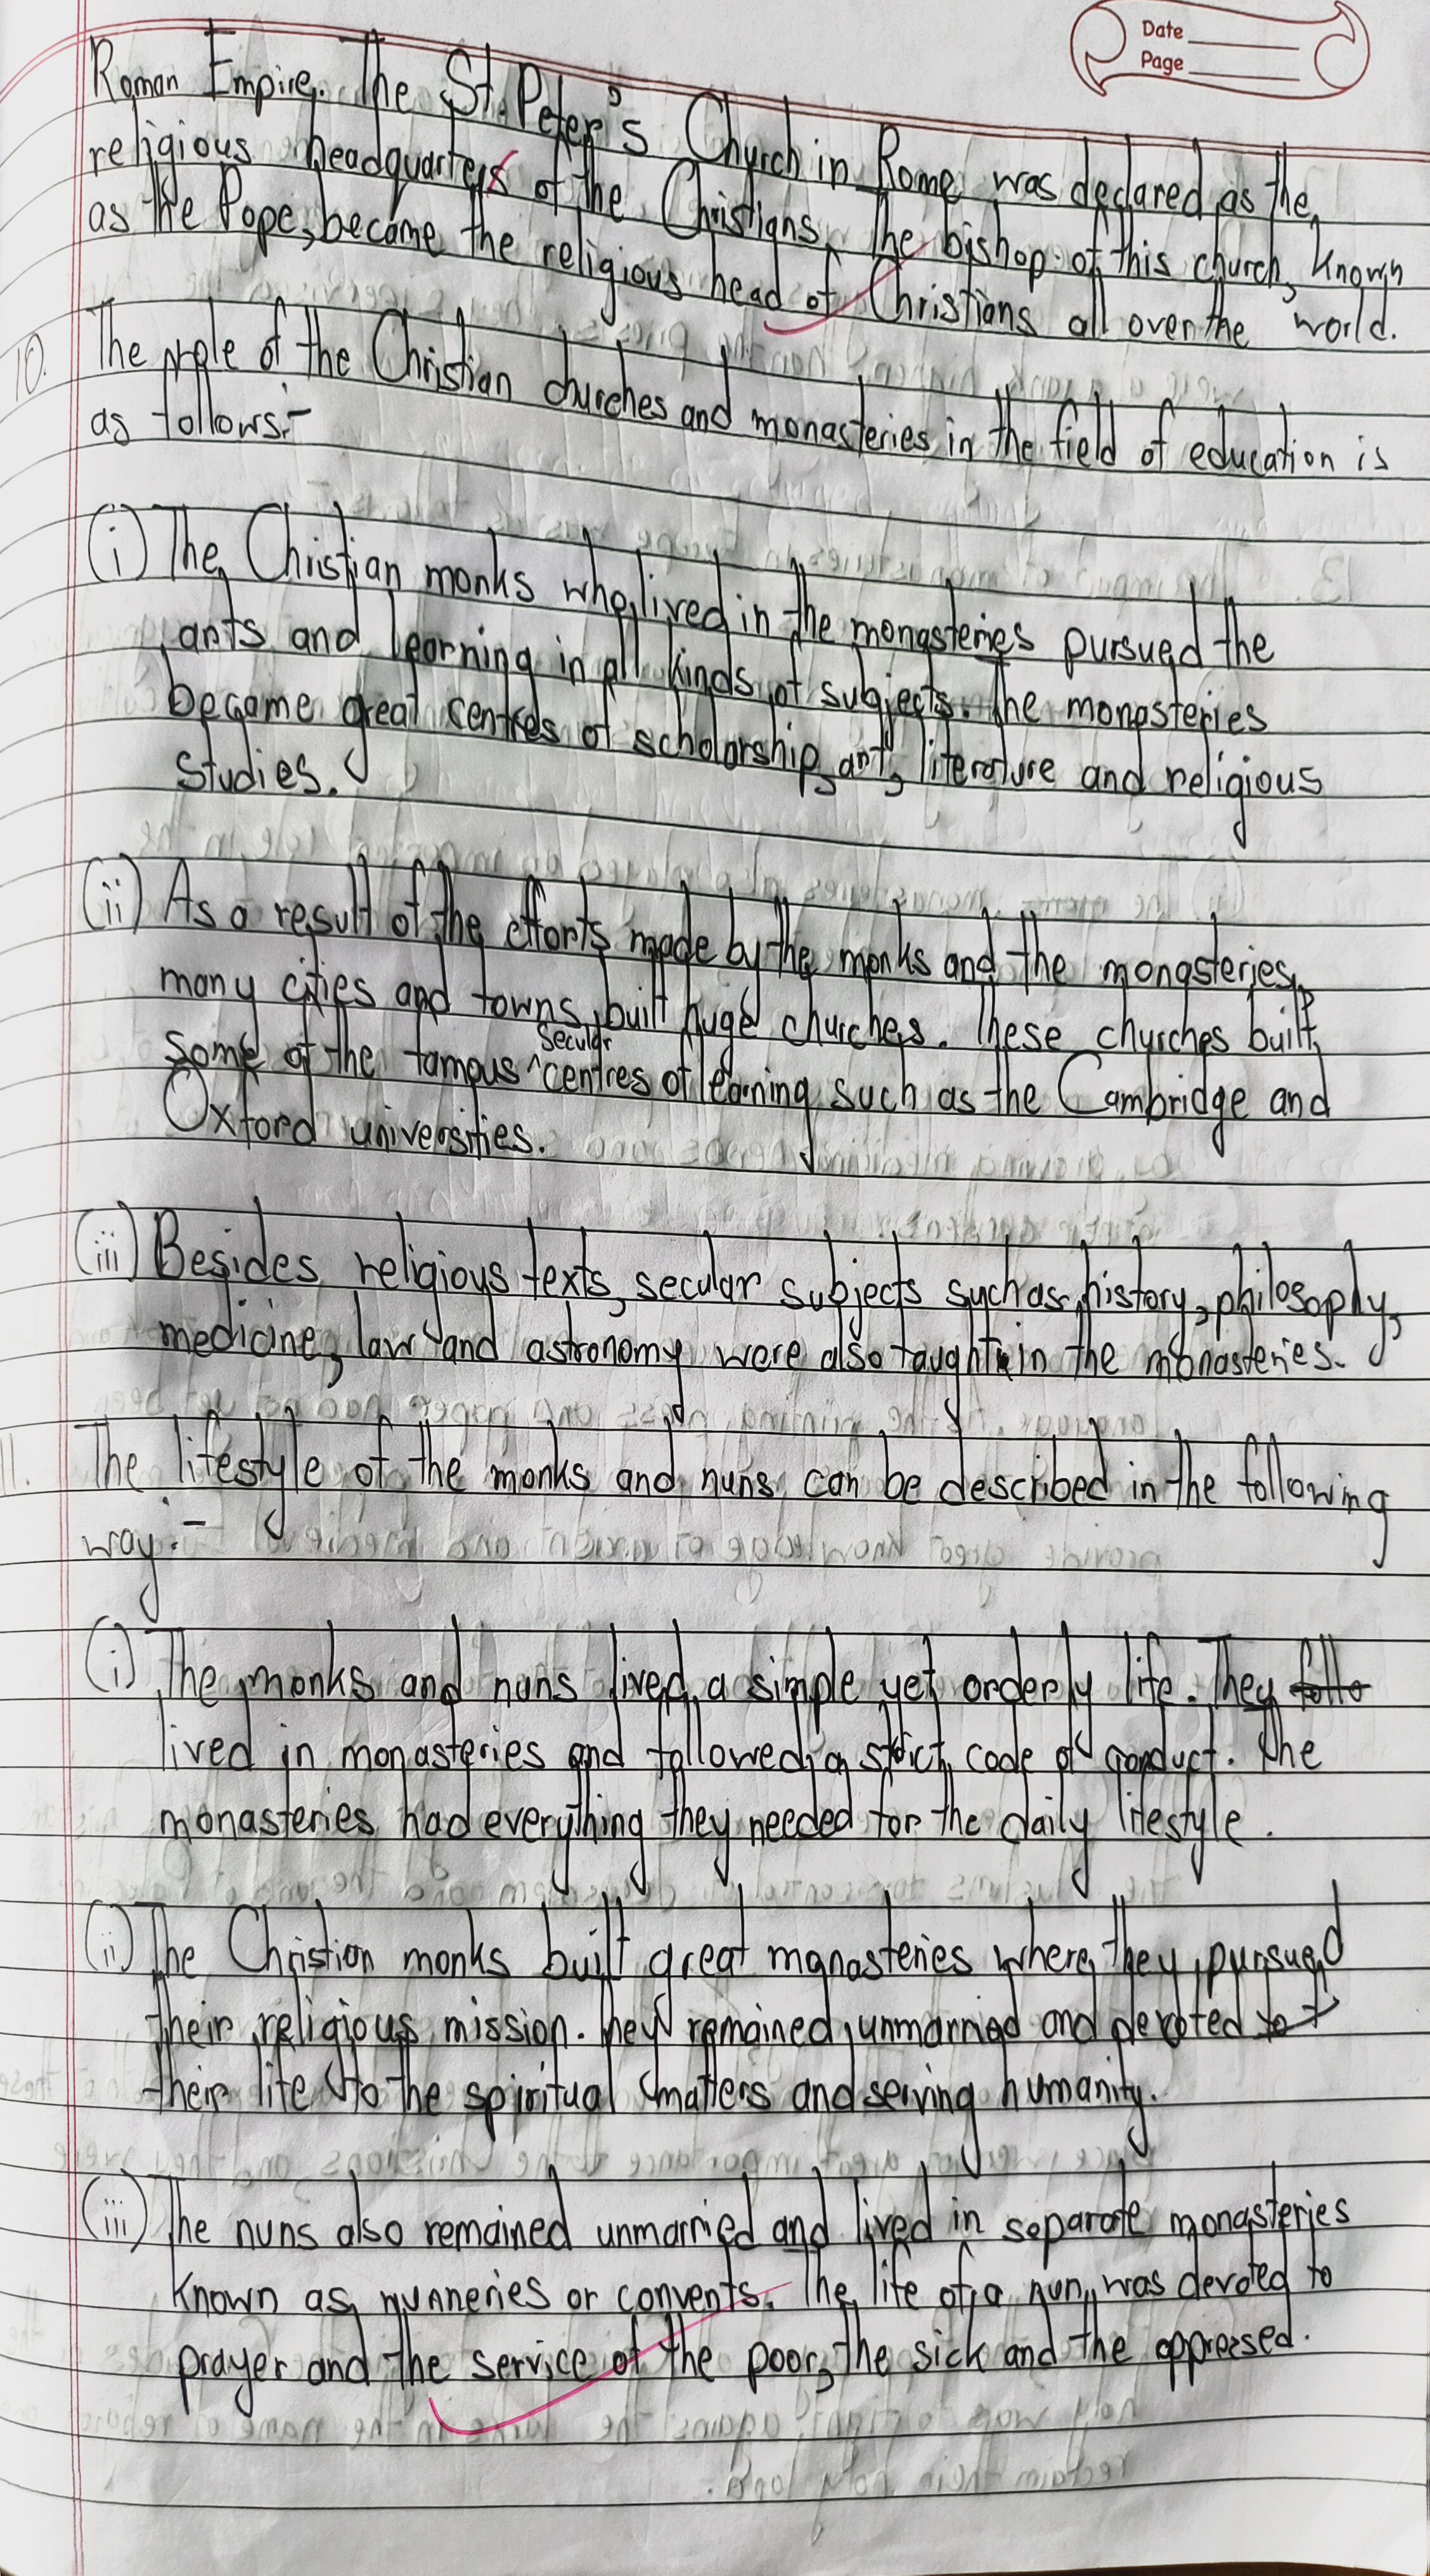 Date
Page
Roman Empire. The St. Peter's Church in Rome was declared as the
religious headquarters of the Christians. The bishop of this church, known
as the Pope, became the religious head of Christians all over the world.
10. The role of the Christian churches and monasteries in the field of education is
as follows:-
(i) The Christian monks who lived in the monasteries pursued the
arts and learning in all kinds of subjects. The monasteries
became great centres of scholarship, art, literature and religious
studies.
(ii) As a result of the efforts made by the monks and the monasteries,
many cities and towns built huge churches. These churches built
secular
some of the famous ^centres of learning such as the Cambridge and
Oxford universities.
(iii) Besides religious texts, secular subjects such as history, philosophy,
medicine, law and astronomy were also taught in the monasteries.
11. The lifestyle of the monks and nuns can be described in the following
way:-
(i) The monks and nuns lived a simple yet orderly life. They follo
lived in monasteries and followed a strict code of conduct. The
monasteries had everything they needed for the daily lifestyle.
(ii) The Christian monks built great monasteries where they pursued
their religious mission. They remained unmarried and devoted to t
their life to the spiritual matters and serving humanity.
(iii) The nuns also remained unmarried and lived in separate monasteries
known as nunneries or convents. The life of a nun was devoted to
prayer and the service of the poor, the sick and the oppressed.